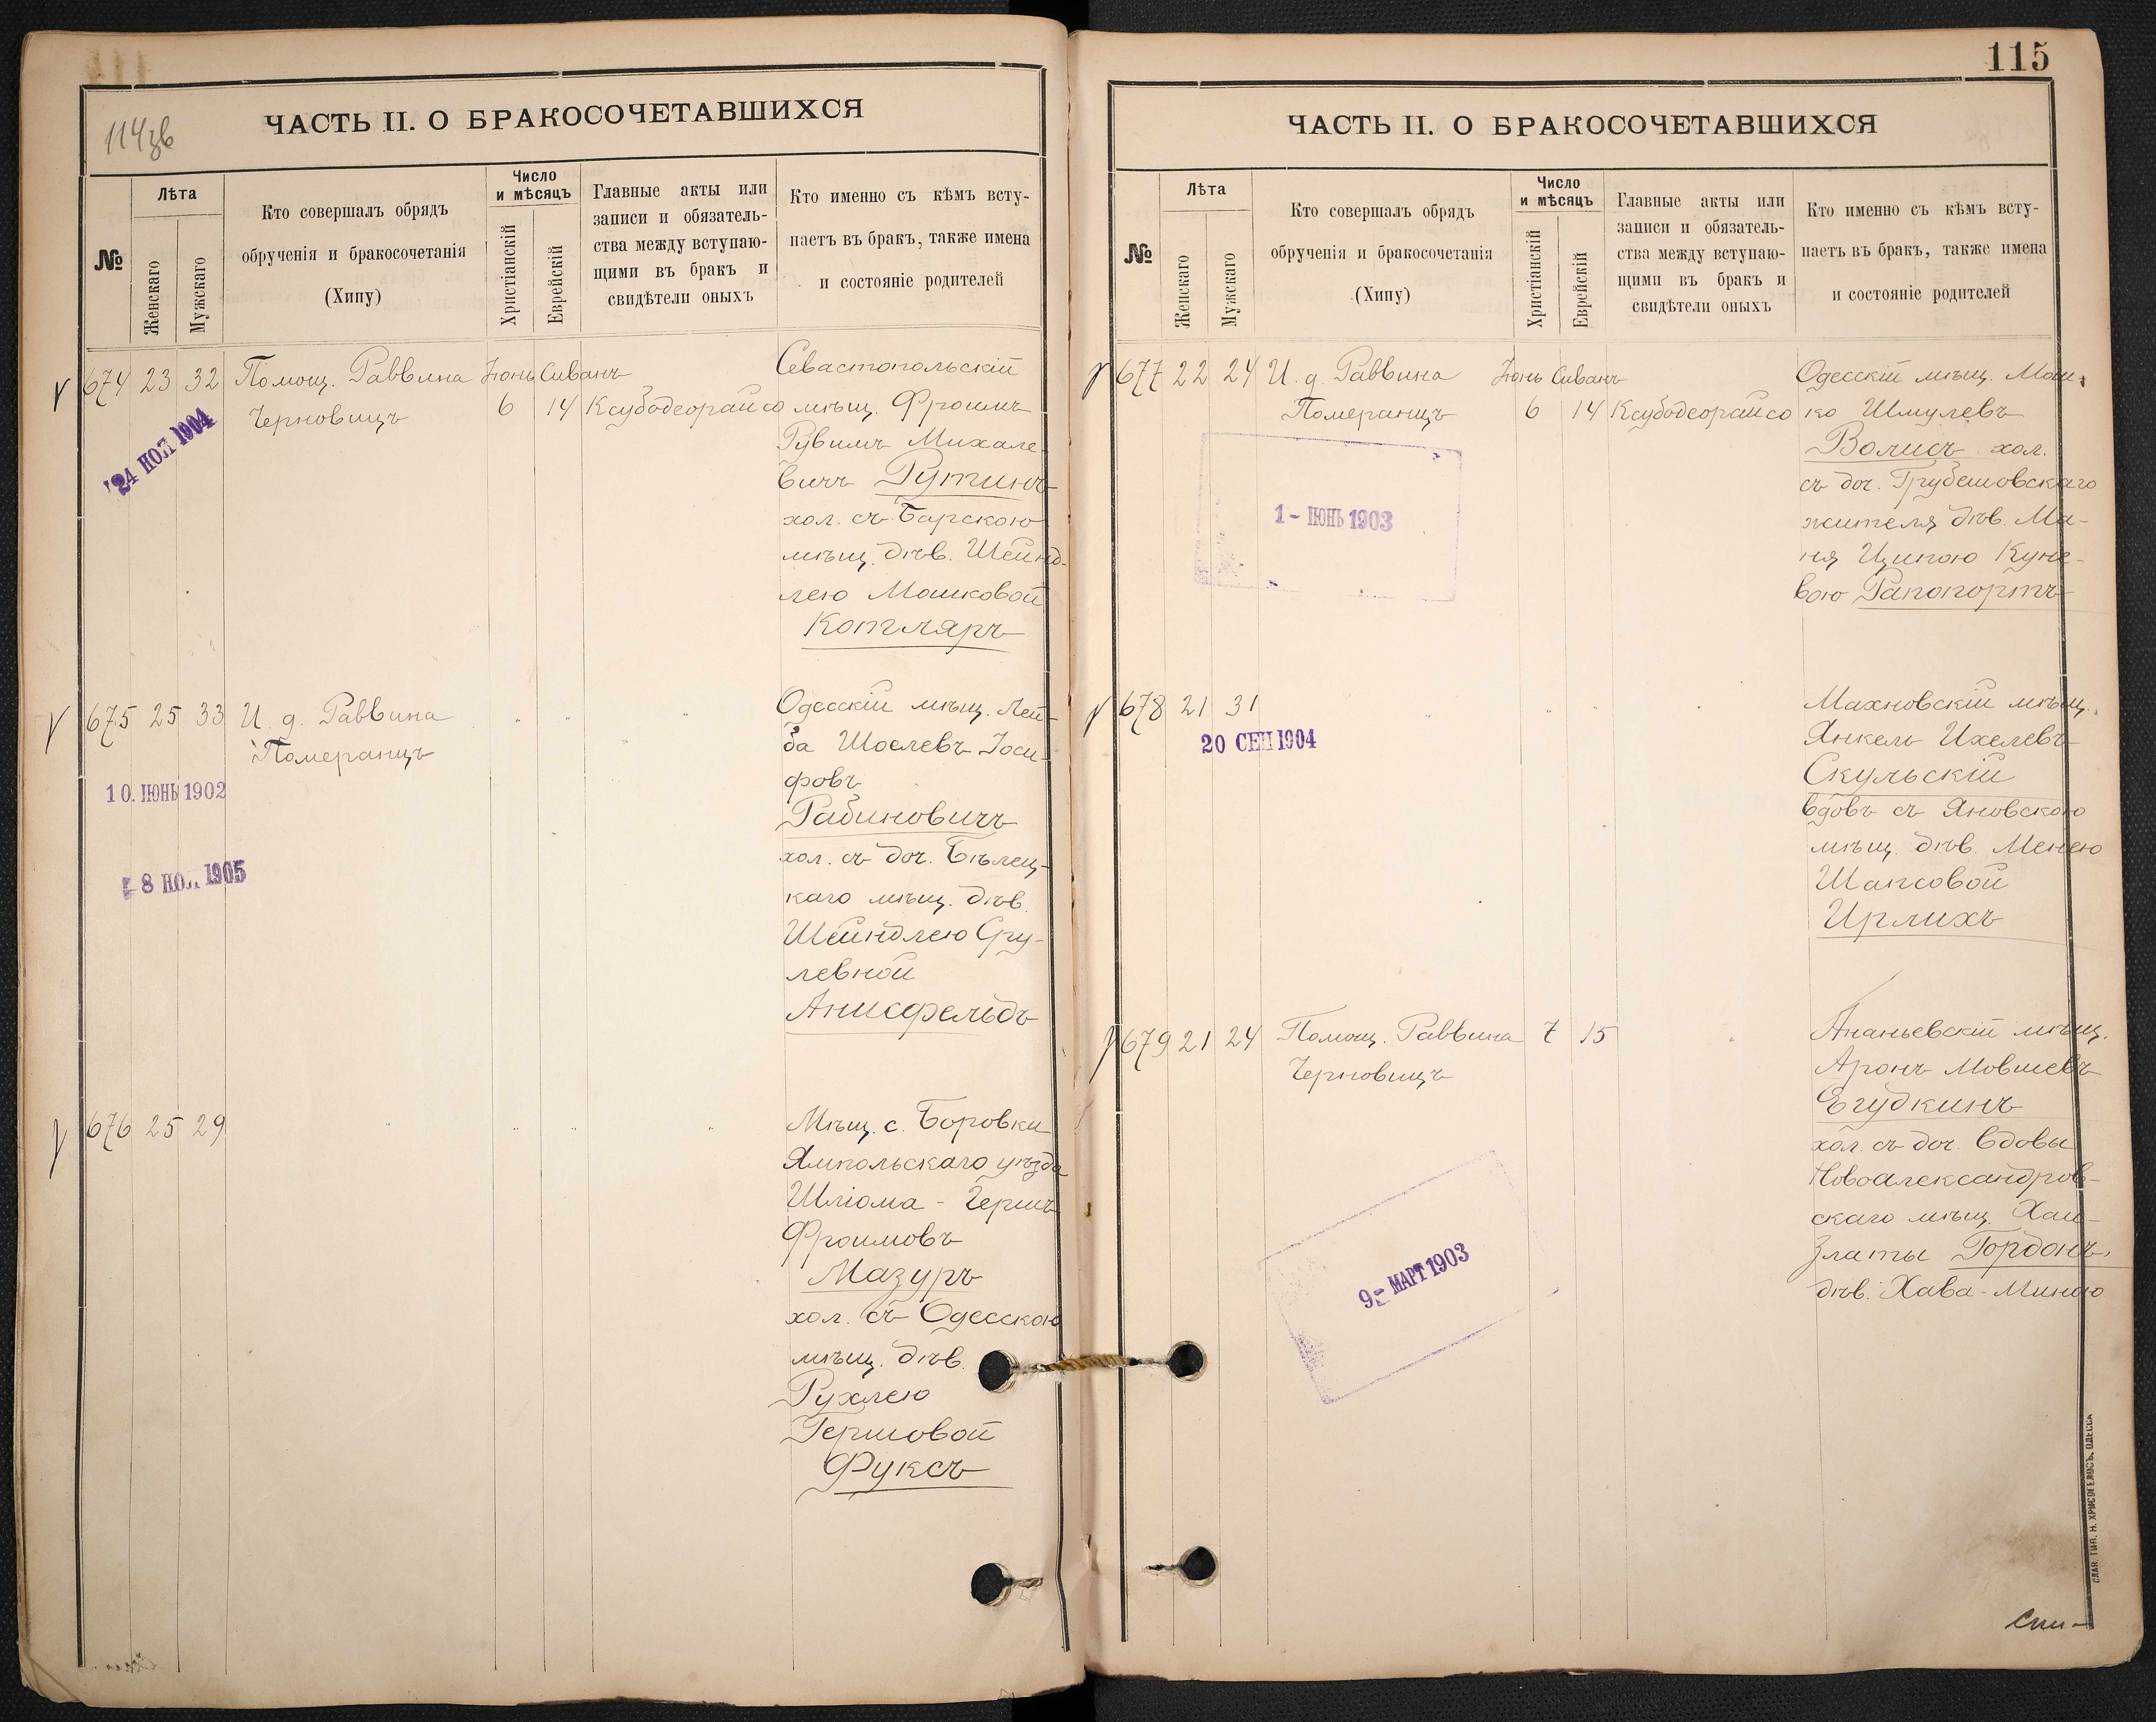 114 зв
ЧАСТЬ II. О БРАКОСОЧЕТАВШИХСЯ
№
Лѣта
Женскаго
Мужскаго
Кто совершалъ обрядъ
обрученія и бракосочетанія
(Хипу)
Число
и мѣсяцъ
Христіанскій
Еврейскій
Главные акты или
записи и обязатель-
ства между вступаю-
щими въ бракъ и
свидѣтели оныхъ
Кто именно съ кѣмъ всту-
паетъ въ бракъ, также имена
и состояніе родителей
674 23 32 Помощ. Раввина Іюнь Сиванъ Севастопольскій
Черновицъ 6 14 Ксубодеорайсо мѣщ. Фроимъ
24 НОЯ 1904
Рувимъ Михале-
вичъ Рутинъ
хол. съ Барскою
мѣщ. дѣв. Шейнд-
лею Мошковой
Котляръ
675 25 33 И. д. Раввина " " " Одесскій мѣщ. Лей-
Померанцъ ба Шоелевъ Іоси-
10. ІЮНЬ 1902
фовъ
Рабиновичъ
8 НОЯ 1905
хол. съ доч. Бѣлец-
каго мѣщ. дѣв.
Шейндлею Сру-
левной
Анисфельдъ
676 25 29 " " " " Мѣщ. с. Боровки
Ямпольскаго уѣзда
Шліома - Гершъ
Фроимовъ
Мазуръ
хол. съ Одесскою
мѣщ. дѣв.
Рухлею
Гершовой
Фуксъ
115
ЧАСТЬ II. О БРАКОСОЧЕТАВШИХСЯ
№
Лѣта
Женскаго
Мужскаго
Кто совершалъ обрядъ
обрученія и бракосочетанія
(Хипу)
Число
и мѣсяцъ
Христіанскій
Еврейскій
Главные акты или
записи и обязатель-
ства между вступаю-
щими въ бракъ и
свидѣтели оныхъ
Кто именно съ кѣмъ всту-
паетъ въ бракъ, также имена
и состояніе родителей
677 22 24 И. д. Раввина Іюнь Сиванъ Одесскій мѣщ. Мош-
Померанцъ 6 14 Ксубодеорайсо ко Шмулевъ
Волисъ хол.
съ доч. Грубешовскаго
1- ІЮНЬ 1903
жителя дѣв. Ма-
ня Ципою Куне-
вою Рапопортъ
678 21 31 " " " Махновскій мѣщ.
20 СЕН 1904
Янкель Ихелевъ
Скульскій
вдовъ съ Яновскою
мѣщ. дѣв. Менею
Шапсовой
Ирлихъ
679 21 24 Помощ. Раввина 7 15 " Ананьевскій мѣщ.
Черновицъ Аронъ Мовшевъ
Егудкинъ
хол. съ доч. вдовы
Новоалександров-
скаго мѣщ. Хаи-
Златы Гордонъ,
9- МАРТ 1903
дѣв. Хава-Миною
СЛАВ. ТИП. Н. ХРИСОГЕЛОСЪ, ОДЕССА